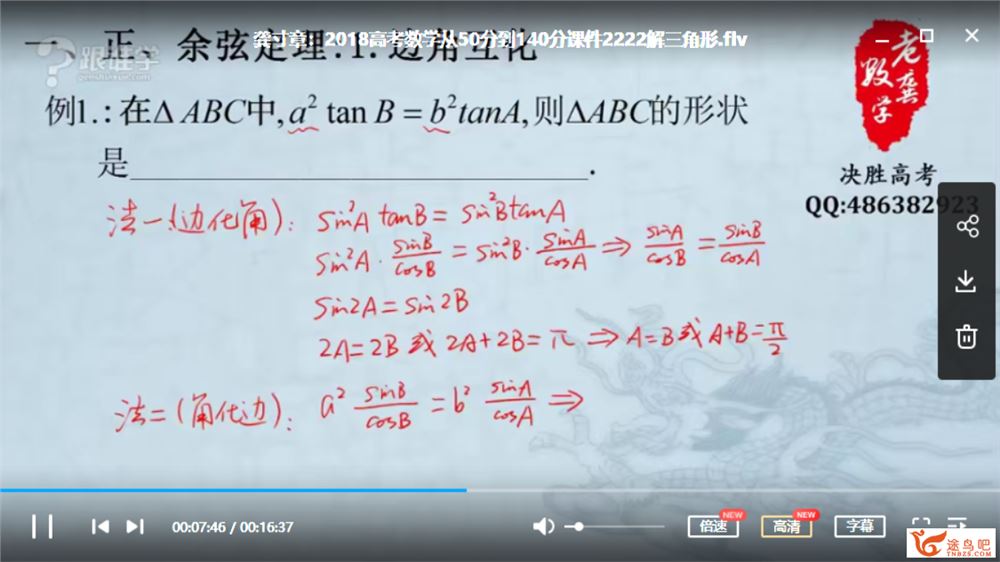 一、正、余弦定理:1.边角互化
龚寸章:2018高考数学从50分到140分课件2222解三角形.flv
跟谁学
genshuixue.com
老龚数学
例1.:在Δ ABC中,a² tan B = b²tanA,则ΔABC的形状
是______________.
决胜高考
QQ:486382923
法一(边化角): sin²A tanB = sin²B tanA
sin²A · sinB/cosB = sin²B · sinA/cosA ⇒ sinA/cosB = sinB/cosA
sin2A = sin2B
2A=2B 或 2A+2B=π ⇒ A=B 或 A+B=π/2
法二(角化边): a² sinB/cosB = b² sinA/cosA ⇒
00:07:46 / 00:16:37
倍速 NEW
高清 NEW
字幕
途鸟吧
TNBZS.COM